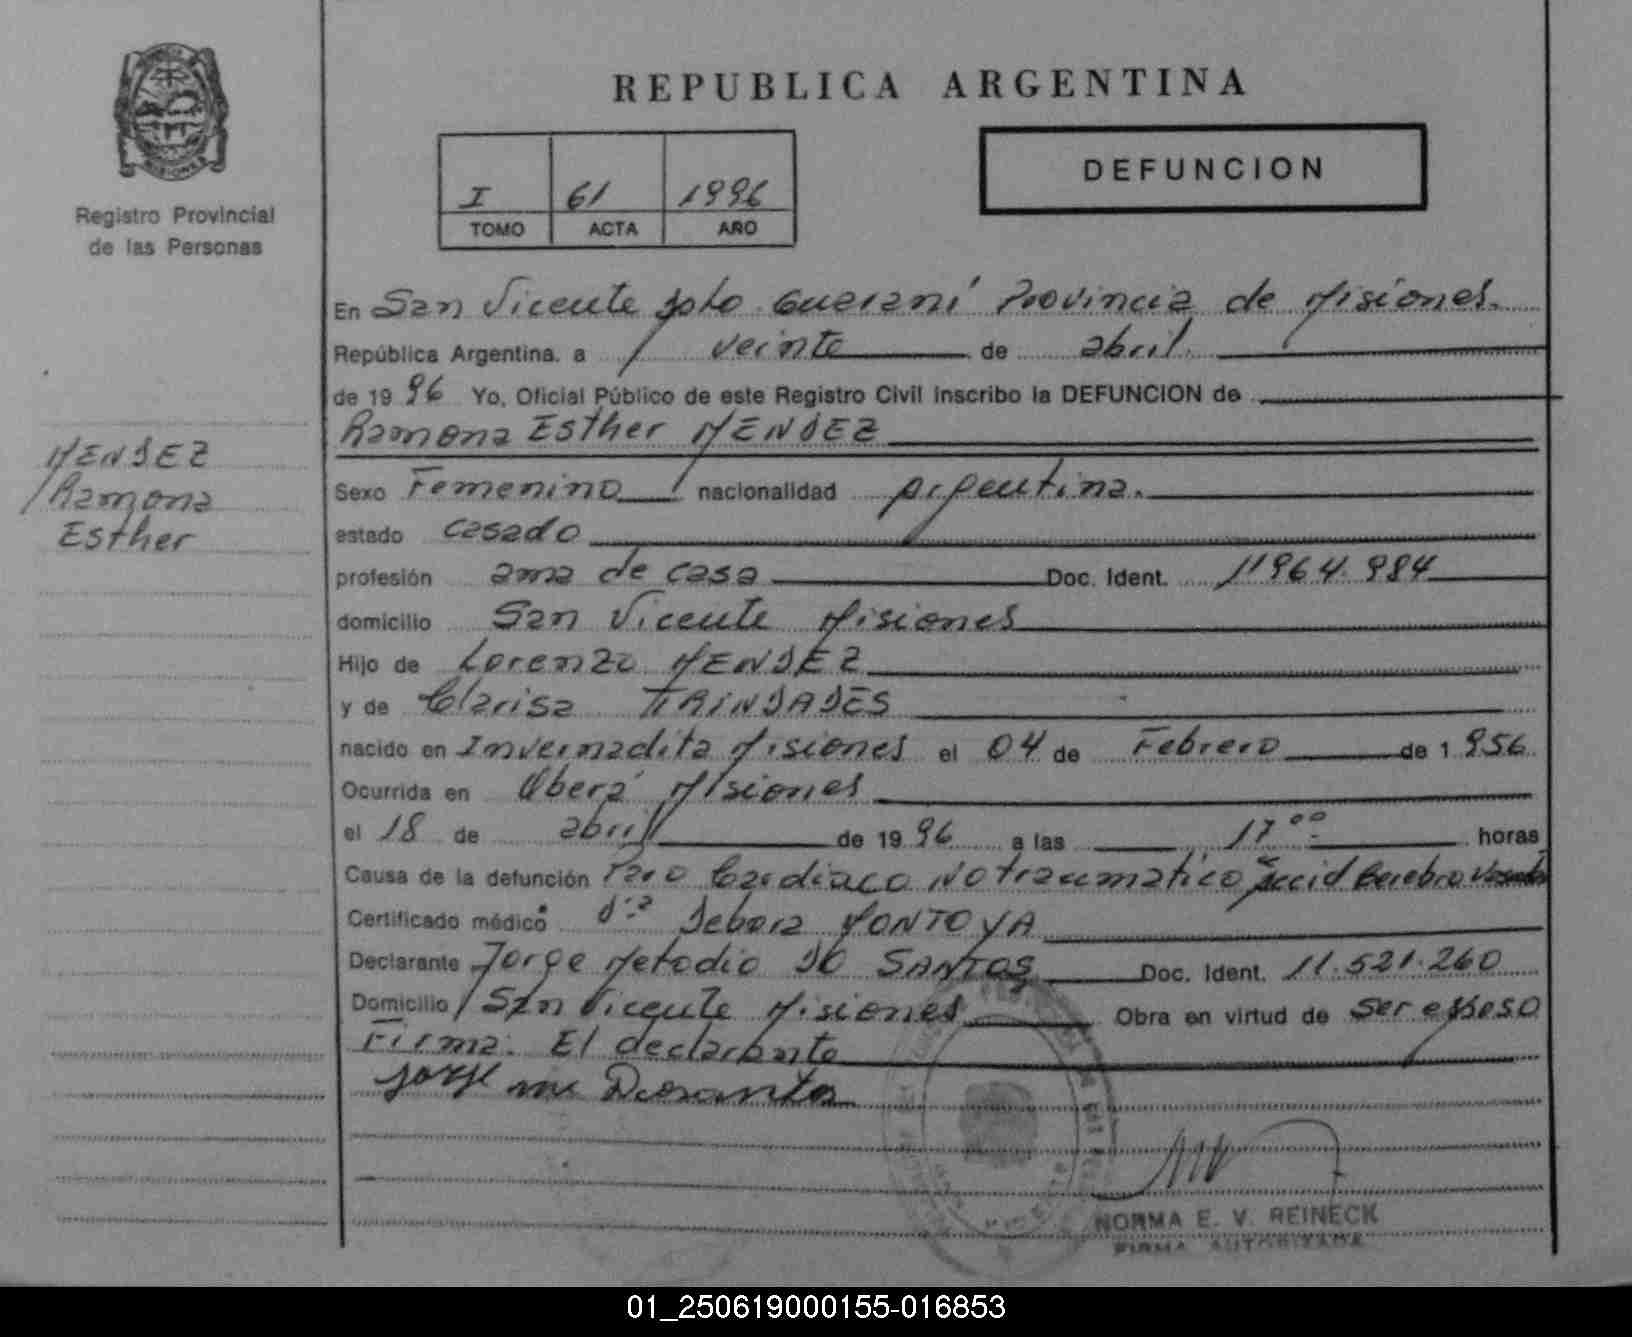 REPUBLICA ARGENTINA
MISIONES
Registro Provincial
de las Personas
I 61 1996
TOMO ACTA AÑO
DEFUNCION
En San Vicente Dpto. Guaraní Provincia de Misiones.
República Argentina. a veinte de abril.
de 19 96 Yo, Oficial Público de este Registro Civil inscribo la DEFUNCION de
Ramona Esther MENDEZ
MENDEZ
Ramona
Esther
Sexo Femenino nacionalidad Argentina.
estado casado
profesión ama de casa Doc. Ident. 11964.984
domicilio San Vicente Misiones
Hijo de Lorenzo MENDEZ
y de Clarisa TRINDADES
nacido en Invernadita Misiones el 04 de Febrero de 1.956.
Ocurrida en Oberá Misiones
el 18 de abril de 19 96 a las 17 00 horas
Causa de la defunción Paro Cardiaco No traumatico Accid Cerebro Vascular
Certificado médico Dra Debora MONTOYA
Declarante Jorge Metodio DO SANTOS Doc. Ident. 11.521.260
Domicilio San Vicente Misiones Obra en virtud de ser esposo
Firma. El declarante
Jorge
NORMA E. V. REINECK
FIRMA AUTORIZADA
01_250619000155-016853